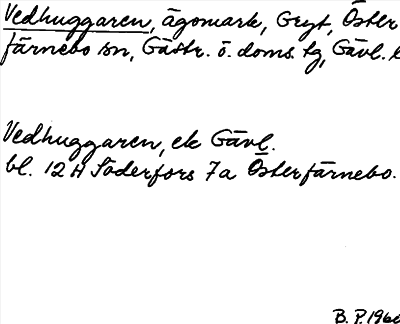 Vedhuggaren, ägomark, Gryt, Öster
färnebo sn, Gästr. ö. doms. tg, Gävl. l
Vedhuggaren, ek Gävl.
bl. 12 H Söderfors 7a Österfärnebo.
B. P. 1966